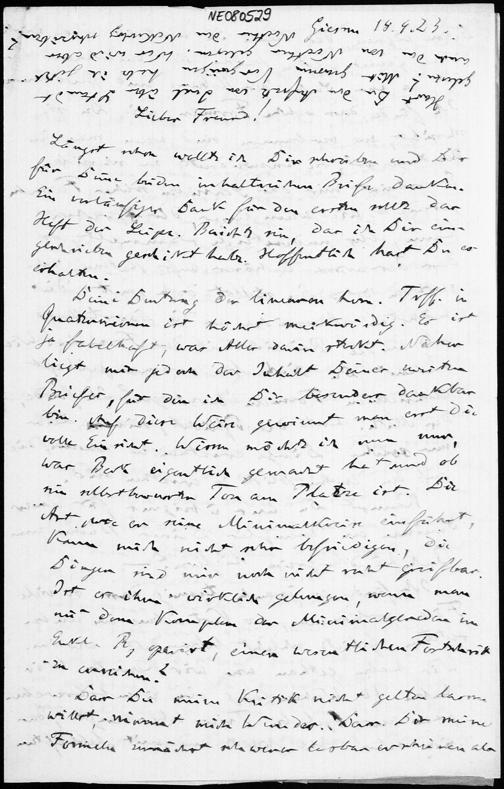 NE080529
Giessen 18.9.23.
Lieber Freund!
Längst schon wollte ich Dir schreiben und Dir
für Deine beiden inhaltreichen Briefe danken.
Ein vorläufiger Dank für den ersten sollte das
Heft der Leipz. Berichte sein, das ich Dir ein-
geschrieben geschickt habe. Hoffentlich hast Du es
erhalten.
Deine Deutung der linearen kom. Trff. in
Quaternionen ist höchst merkwürdig. Es ist
ja fabelhaft, was Alles darin steckt. Näher
liegt mir jedoch der Inhalt Deines zweiten
Briefes, für den ich Dir besonders dankbar
bin. Auf diese Weise gewinnt man erst die
volle Einsicht. Wissen möchte ich nun nur,
was Beck eigentlich gemacht hat und ob
sein selbstbewusster Ton am Platze ist. Die
Art, wie er seine Minimalkreise einführt,
kann mich nicht sehr befriedigen, die
Dingen sind mir noch nicht recht greifbar.
Ist es ihm wirklich gelungen, wenn man
mit dem Komplex der Minimalgeraden im
Eukl. R₃ operirt, einen wesentlichen Fortschritt
zu erreichen?
Dass Du meine Kritik nicht gelten lassen
willst nimmt mich Wunder. Dass Dir meine
Formeln zunächst schwerer lesbar erschienen als